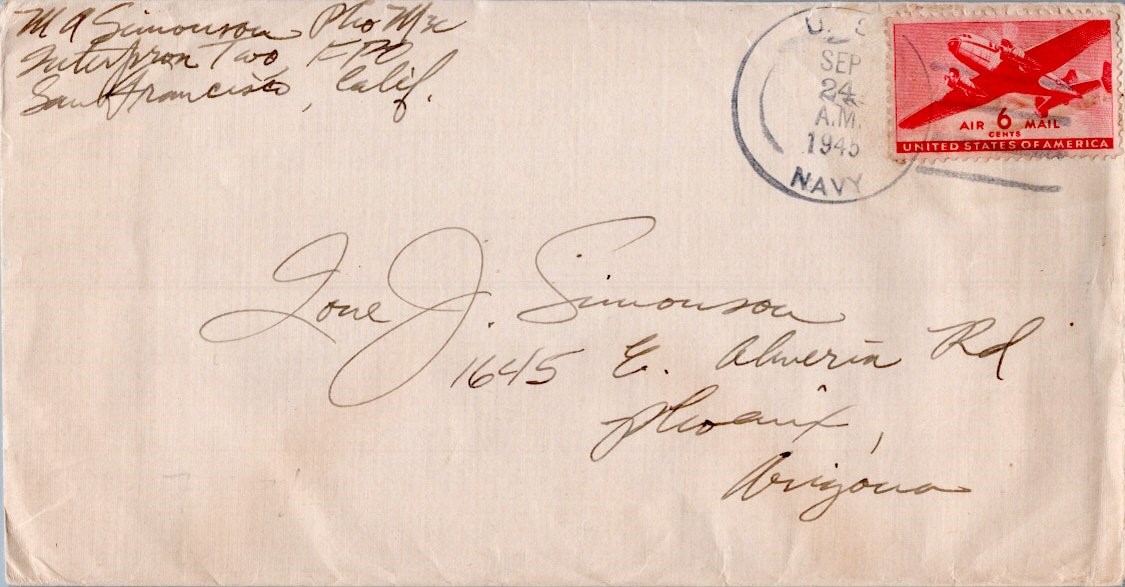 M A Simonson Pho M
Interpron Two FPO
San Francisco, Calif.
U. S.
SEP
24
A.M.
1945
NAVY
AIR 6 MAIL
CENTS
UNITED STATES OF AMERICA
Ione J. Simonson
1645 E. Almeria Rd
Phoenix,
Arizona